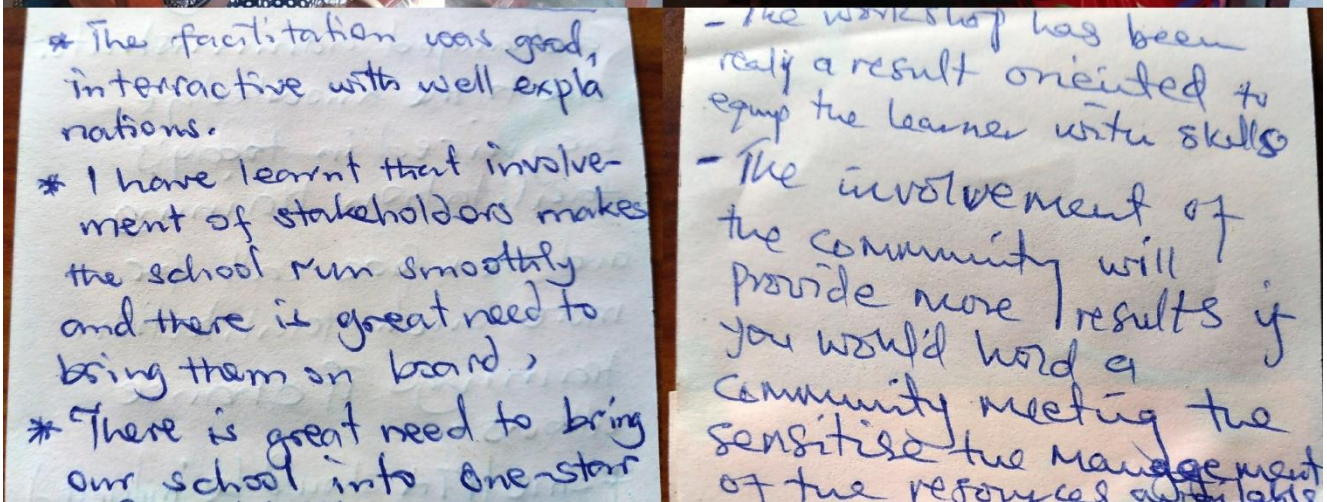 * The facilitation was good,
interractive with well expla
nations.
* I have learnt that involve-
ment of stakeholders makes
the school run smoothly
and there is great need to
bring them on board,
* There is great need to bring
our school into one-star
- The workshop has been
realy a result orieinted to
equip the learner with skills
- The involvement of
the community will
provide more results if
you would hold a
community meeting the
sensitise the management
of the resources and